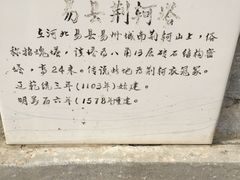 易县荆轲塔
在河北易县易州城南荆轲山上，俗
称指塊塔，该塔为八角13层砖石结构密
塔，高24米。传说此地为荆轲衣冠冢。
辽乾统三年(1103年)始建。
明万历六年(1578年)重建。